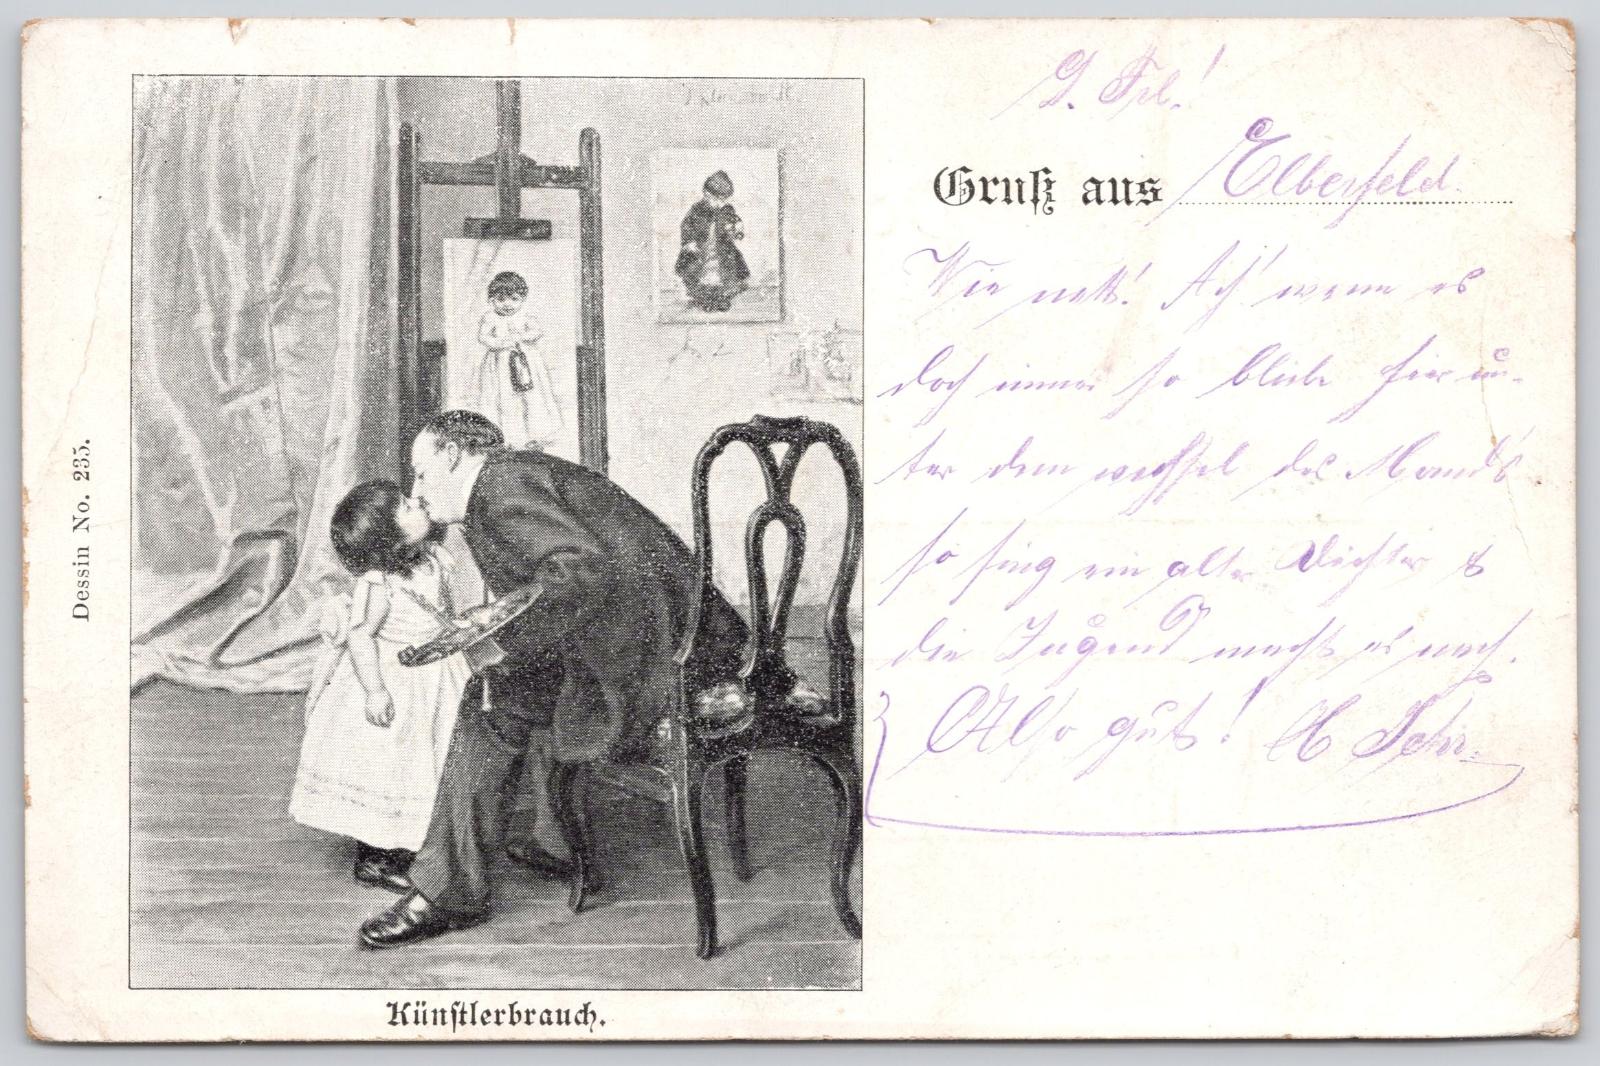 Dessin No. 235.
Künstlerbrauch.
G. Frl.!
Gruß aus Elberfeld.
Wie nett! Ach! wenn es
doch immer so bliebe hier un-
ter dem wechsel des Monds
so sing ein alter Dichter &
die Jugend macht es nach.
Also gut! H